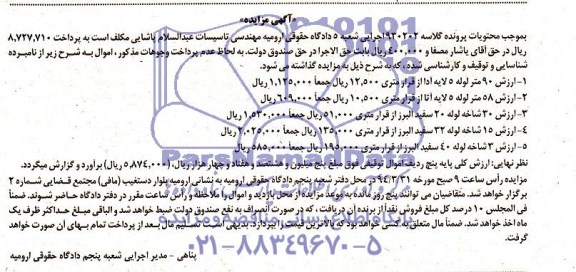 «آگهی مزایده»
بموجب محتویات پرونده کلاسه ۹۳۰۲۰۲ اجرایی شعبه ۵ دادگاه حقوقی ارومیه مهندسی تاسیسات عبدالسلام پاشایی مکلف است به پرداخت ۸,۷۲۷,۷۱۰
ریال در حق آقای یاشار مصفا و ۴۰۰,۰۰۰ ریال بابت حق الاجرا در حق صندوق دولت. به لحاظ عدم پرداخت وجوهات مذکور، اموال به شرح زیر از نامبرده
شناسایی و توقیف و کارشناسی شده، که به شرح ذیل به مزایده گذاشته می شود.
۱- ارزش ۹۰ متر لوله ۵ لایه ادا از قرار متری ۱۲,۵۰۰ ریال جمعاً ۱,۱۲۵,۰۰۰ ریال
۲- ارزش ۵۸ متر لوله ۵ لایه آتا از قرار متری ۱۰,۵۰۰ ریال جمعاً ۶۰۹,۰۰۰ ریال
۳- ارزش ۳۰ شاخه لوله ۲۰ سفید البرز از قرار متری ۵۱,۰۰۰ ریال جمعاً ۱,۵۳۰,۰۰۰ ریال
۴- ارزش ۱۵ شاخه لوله ۳۲ سفید البرز از قرار متری ۱۳۵,۰۰۰ ریال جمعاً ۲,۰۲۵,۰۰۰ ریال
۵- ارزش ۳ شاخه لوله ۴۰ سفید البرز از قرار متری ۱۹۵,۰۰۰ ریال جمعاً ۵۸۵,۰۰۰ ریال
نظر نهایی: ارزش کلی پایه پنج ردیف اموال توقیفی فوق مبلغ پنج میلیون و هشتصد و هفتاد و چهار هزار ریال, (۵,۸۷۴,۰۰۰ ریال) برآورد و گزارش میگردد.
مزایده رأس ساعت ۹ صبح مورخه ۹۴/۳/۳۱ در محل دفتر شعبه پنجم دادگاه حقوقی ارومیه به نشانی ارومیه بلوار دستغیب (مافی) مجتمع قضایی شماره ۲
برگزار خواهد شد. متقاضیان می توانند پنج روز مانده به موعد مزایده از محل بازدید و اموال را ملاحظه و رأس ساعت مقرر در دفتر دادگاه حاضر شوند. ضمناً
فی المجلس ۱۰ درصد کل مبلغ فروش نقداً از برنده آن دریافت، که در صورت انصراف به نفع صندوق دولت ضبط خواهد شد و الباقی مبلغ حداکثر ظرف یک
ماه اخذ خواهد شد. ضمناً مال متعلق به کسی خواهد بود که بالاترین قیمت را بپردازد. بدیهی است تسلیم مال بعد از پرداخت تمام بهای آن صورت خواهد
گرفت.
پناهی - مدیر اجرایی شعبه پنجم دادگاه حقوقی ارومیه
۰۲۱-۸۸۳۴۹۶۷۰-۵